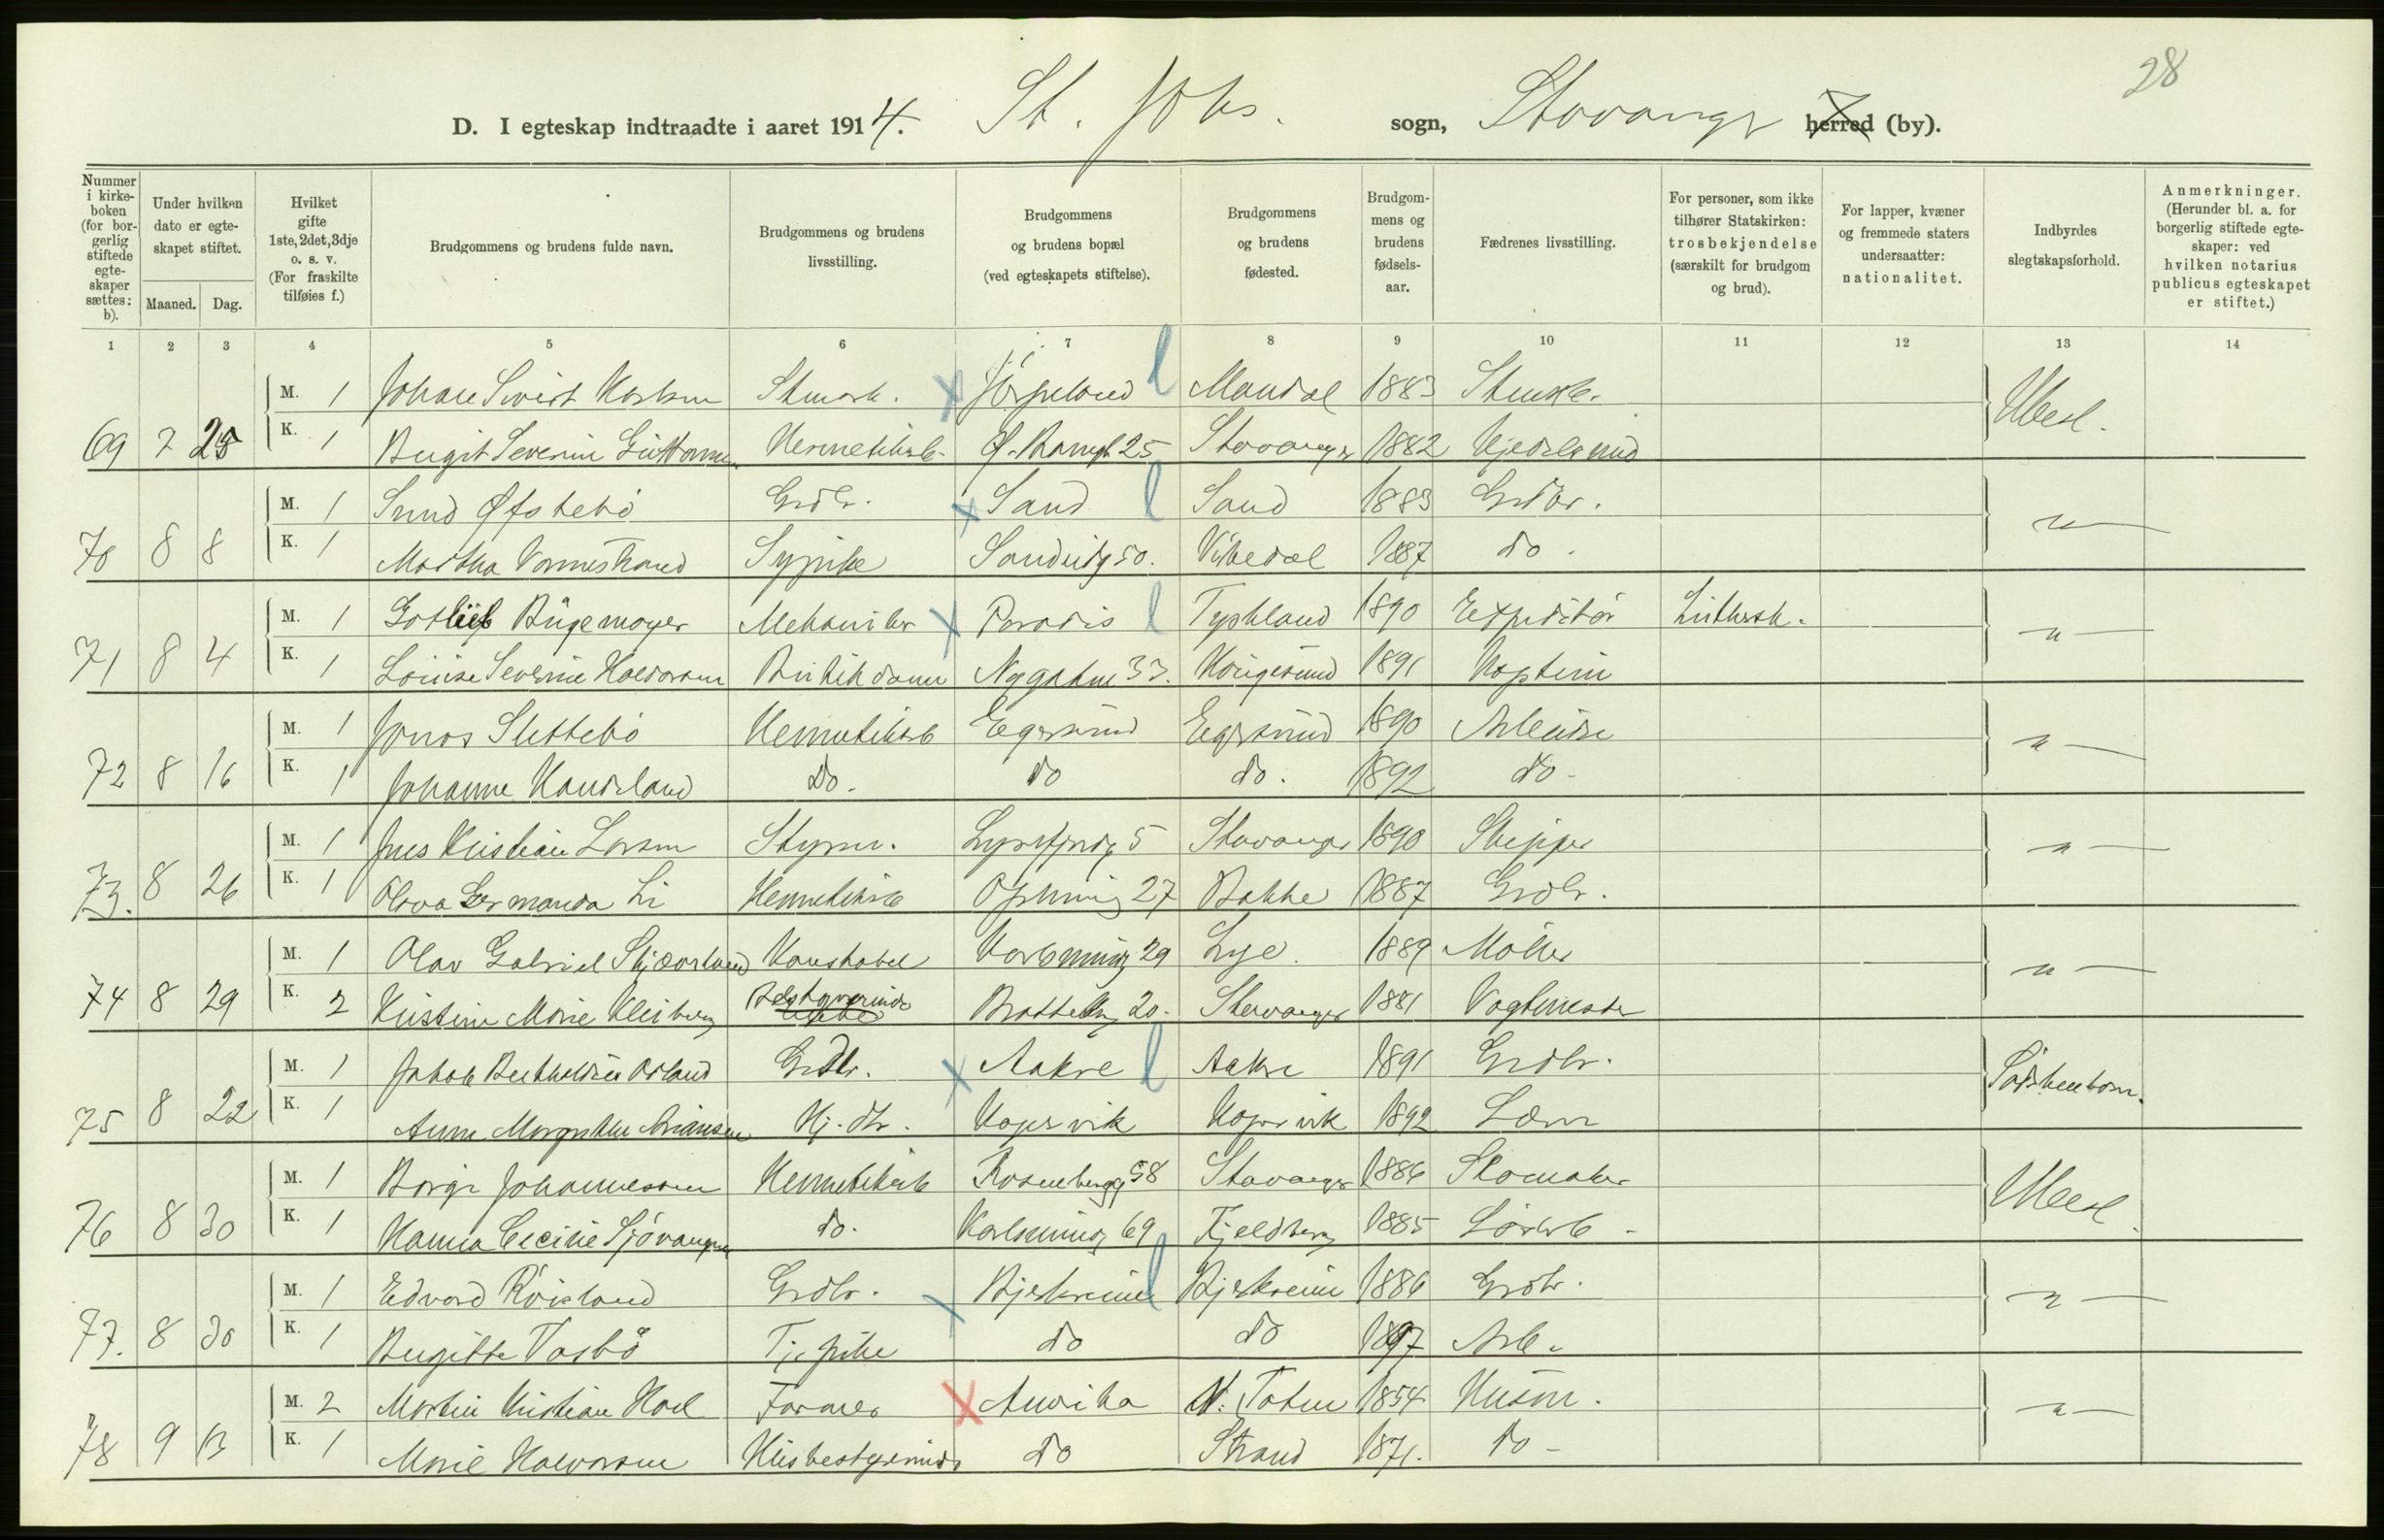 28
D. I egteskap indtraadte i aaret 1914. St. Johs. sogn, Stavanger herred (by).
Nummer i kirkeboken (for borgerlig stiftede egteskaper sættes: b).
Under hvilken dato er egteskapet stiftet.
Maaned. Dag.
Hvilket gifte 1ste, 2det, 3dje o. s. v. (For fraskilte tilføies f.)
Brudgommens og brudens fulde navn.
Brudgommens og brudens livsstilling.
Brudgommens og brudens bopæl (ved egteskapets stiftelse).
Brudgommens og brudens fødested.
Brudgommens og brudens fødselsaar.
Fædrenes livsstilling.
For personer, som ikke tilhører Statskirken: trosbekjendelse (særskilt for brudgom og brud).
For lapper, kvæner og fremmede staters undersaatter: nationalitet.
Indbyrdes slegtskapsforhold.
Anmerkninger. (Herunder bl. a. for borgerlig stiftede egteskaper: ved hvilken notarius publicus egteskapet er stiftet.)
1 2 3 4 5 6 7 8 9 10 11 12 13 14
M. 1 Johan Sivert Jørpeland Mandal 1883 Ubesl.
69 7 25 K. 1 Birgit Severine Guttormsen Hermetikarb. 25 Stavanger 1882
M. 1 Svend Øfstebö Grdbr. Sand Sand 1883 Grdbr.
70 8 8 K. 1 Martha Vormestrand Sypike Sandeidg 50. Vikedal 1887 do.
M. 1 Gotlieb Bügemayer Mekaniker Paradis Tyskland 1890 Expeditör Luthersk.
71 8 4 K. 1 Louise Severine Halvorsen Butikdame Nygaten 33. Haugesund 1891 Kaptein
M. 1 Jonas Slettebö Hermetikarb Egersund Egersund 1890 Arbeider
72 8 16 K. 1 Johanne Haudeland do. do do. 1892 do.
M. 1 Jens Kristian Larsen Styrm. Lysefjordg 5 Stavanger 1890 Skipper
73. 8 26 K. 1 Olava Germanda Li Hermetikarb 27 Bakke 1887 Grdbr.
M. 1 Olav Gabriel Skjæveland Konstabel Karlsminneg 29 Lye. 1889 Möller
74 8 29 K. 2 Kristine Marie Kleiberg Bestyrerinde 20. Stavanger 1881 Vagtmester
M. 1 Jakob Berthelsen Østand Grdbr. Aakre Aakre 1891 Grdbr. Söskenbarn.
75 8 22 K. 1 Anne Margrethe Kopervik Kopervik 1892
M. 1 Börge Johannessen Hermetikarb Rosenbergg 58 Stavanger 1886 Skomaker Ubesl.
76 8 30 K. 1 Hanna Cecilie do. Karlsminneg 69 Fjeldberg 1885
M. 1 Edvard Röisland Grdbr. Bjerkreim Bjerkreim 1886 Grdbr.
77. 8 30 K. 1 Birgitte Vasbö Tj.pike do do 1897 Arb.
M. 2 Martin Kristian Hoel Farmer Amerika V. Toten 1854 Husm.
78 9 13 K. 1 Marie Halvorsen Husbestyrerinde do Strand 1871. do